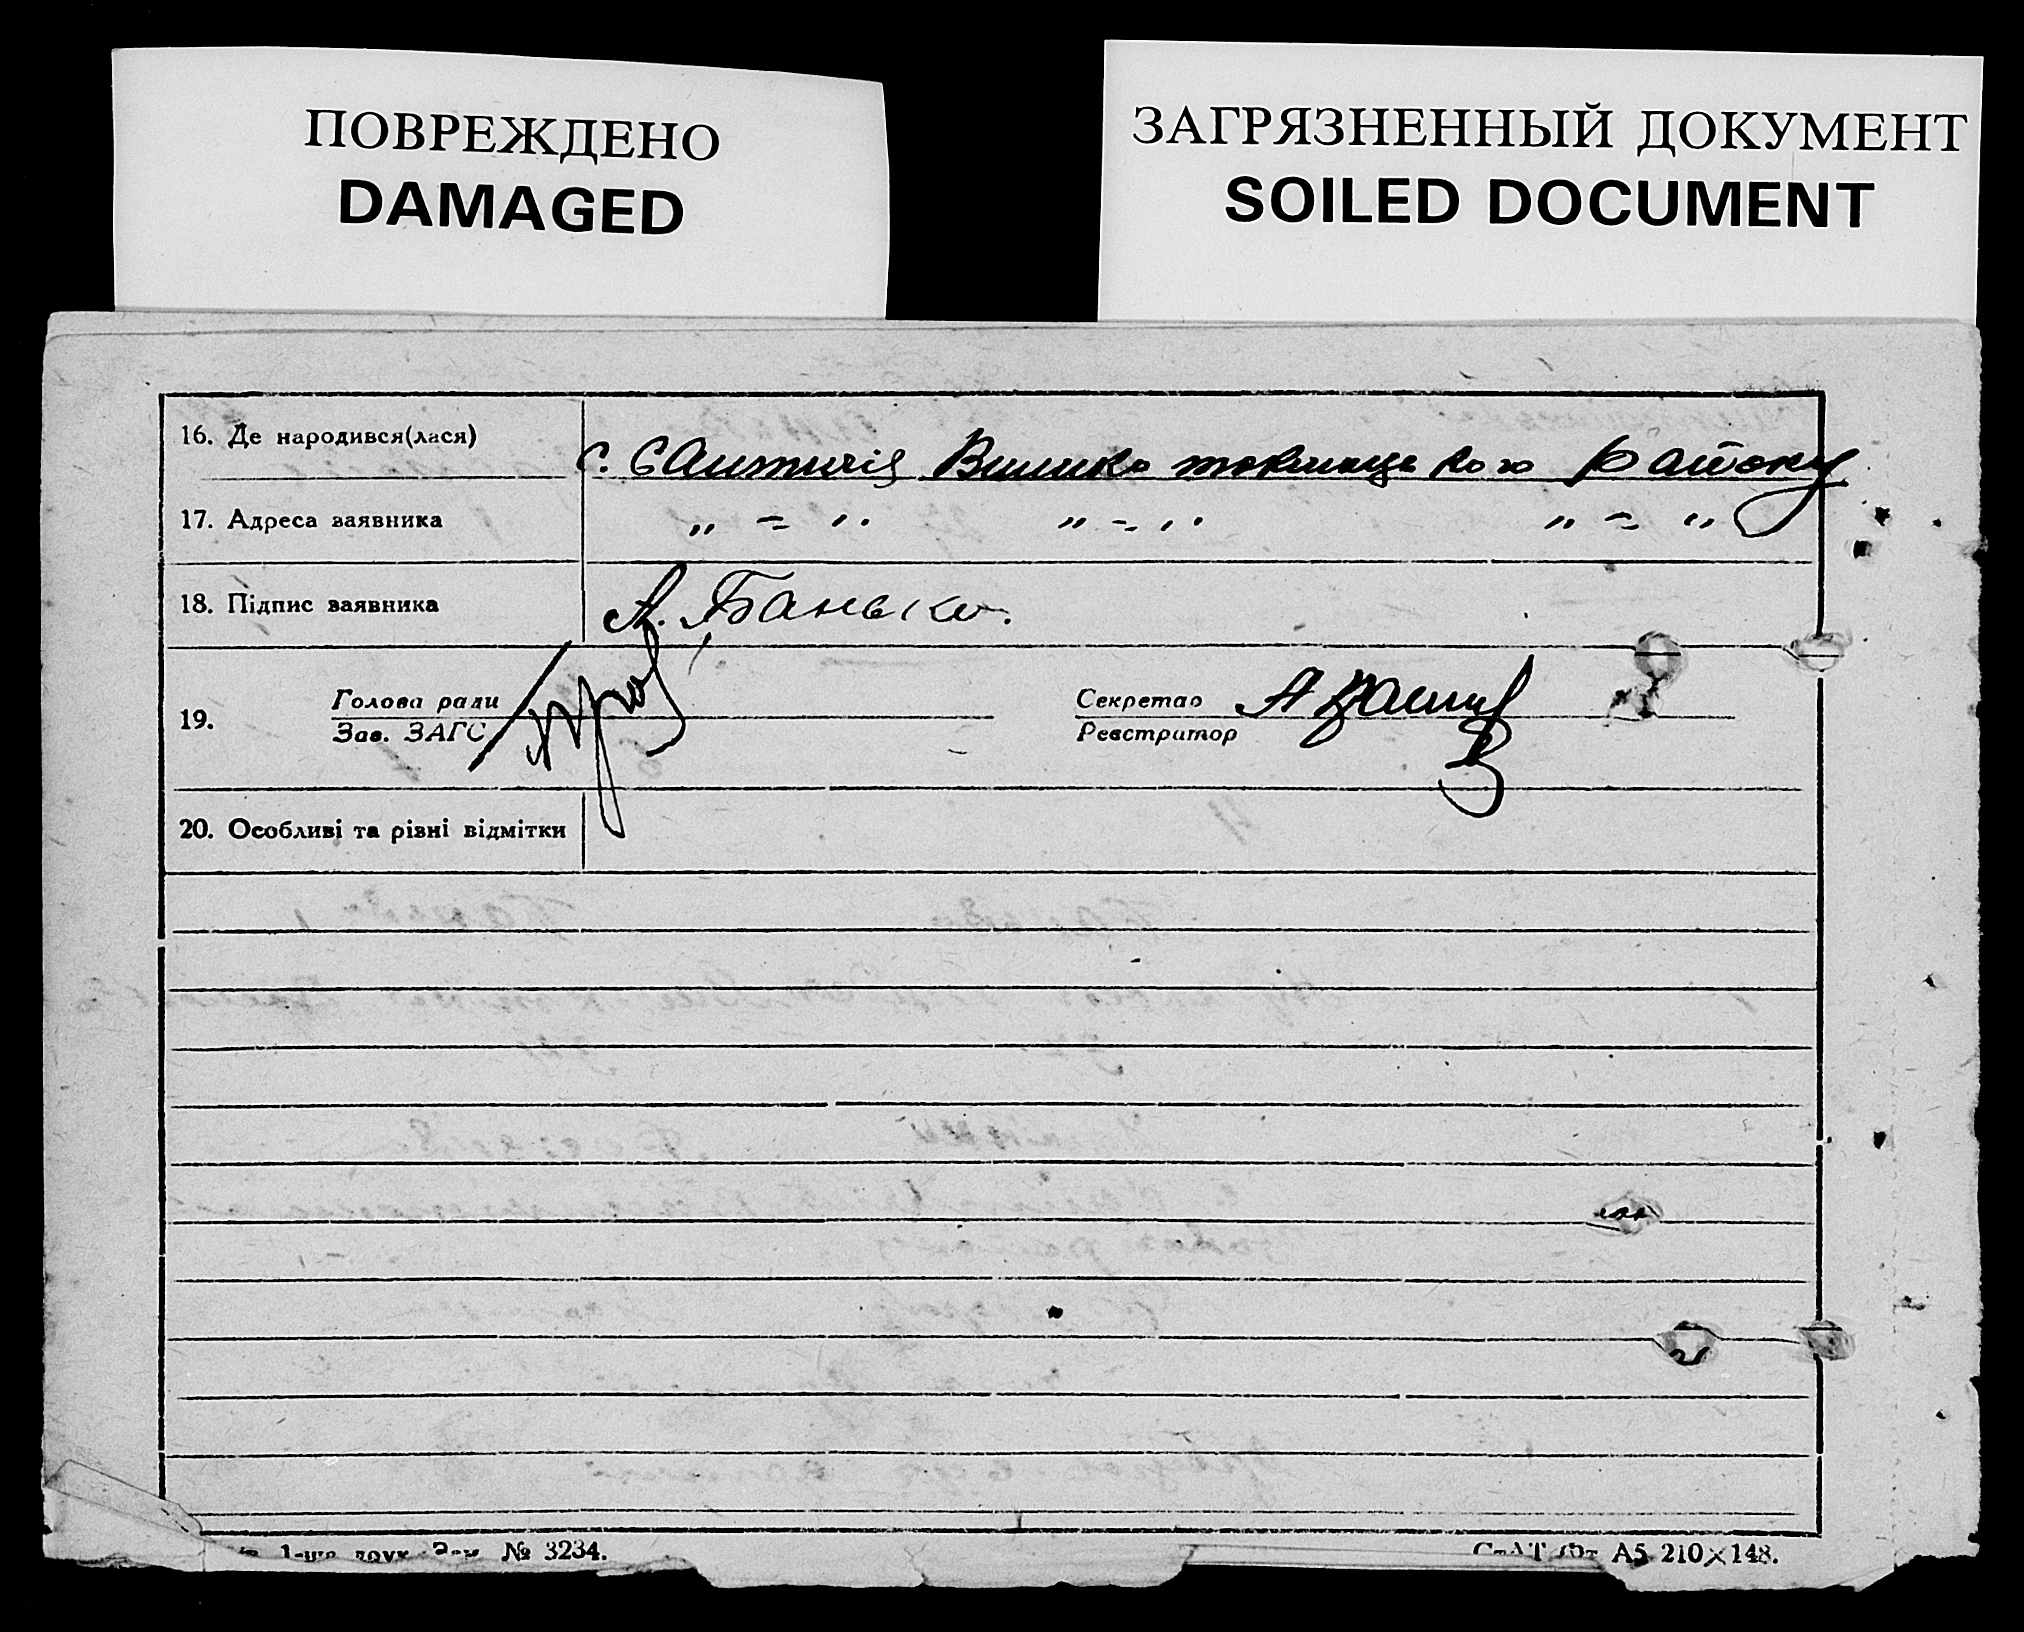 ПОВРЕЖДЕНО
DAMAGED
ЗАГРЯЗНЕННЫЙ ДОКУМЕНТ
SOILED DOCUMENT
16. Де народився(лася) с. Велико токмацького району
17. Адреса заявника „ = „ „ = „ „ = „
18. Підпис заявника А. Банько.
19. Голова ради
Зав. ЗАГС
Секретар
Реєстратор
20. Особливі та різні відмітки
№ 3234.
А5 210×148.